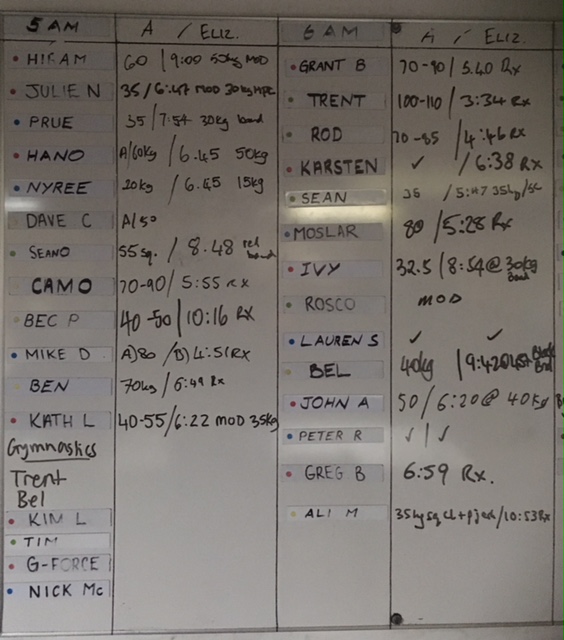 5 AM A / ELIZ.
HIRAM 60 / 9:00 50kg MOD
JULIE N 35 / 6:47 MOD 30kg
PRUE 35 / 7:54 30kg band
HANO A/60kg / 6.45 50kg
NYREE 20kg / 6.45 15kg
DAVE C A/50
SEANO 55 sq. / 8.48 band
CAMO 70-90 / 5:55 RX
BEC P 40-50 / 10:16 RX
MIKE D A)80 / B) 4:51 RX
BEN 70kg / 6:49 Rx
KATH L 40-55 / 6:22 MOD 35kg
Gymnastics
Trent
Bel
KIM L
TIM
G-FORCE
NICK Mc
6 AM A / ELIZ.
GRANT B 70-90 / 5.40 Rx
TRENT 100-110 / 3:34 RX
ROD 70-85 / 4:46 RX
KARSTEN ✓ / 6:38 RX
SEAN 35 / 5:47 35kg
MOSLAR 80 / 5:28 Rx
IVY 32.5 / 8:54 @ 30kg
Band
ROSCO MOD
LAUREN S ✓ ✓
BEL 40kg / 9:42
JOHN A 50 / 6:20 @ 40kg
PETER R ✓ / ✓
GREG B 6:59 Rx.
ALI M 35kg sq cl + / 10:53 Rx